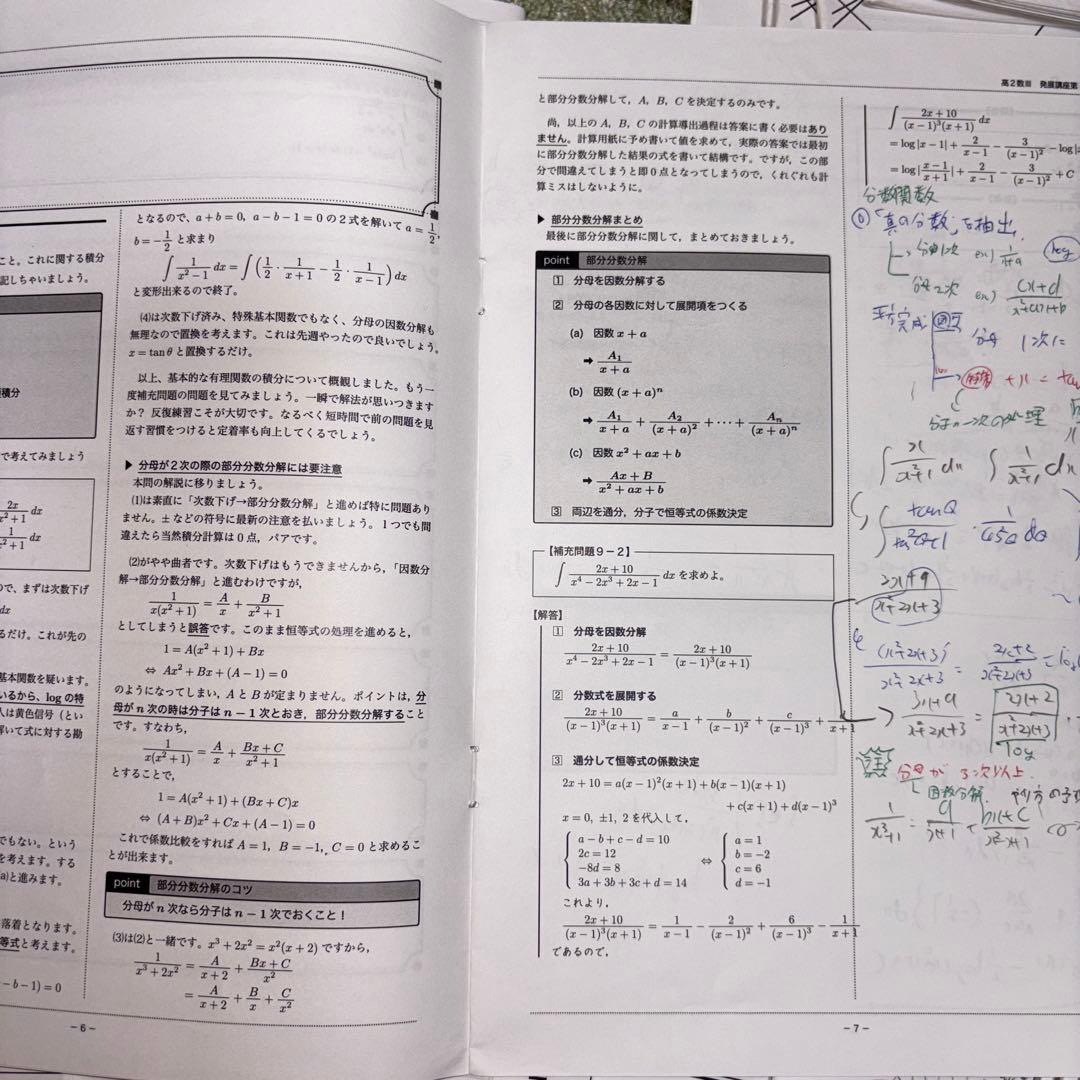 こと。これに関する積分
記しちゃいましょう。
積分
で考えてみましょう
2x/(x²+1) dx
1/(x²+1) dx
ので、まずは次数下げ
dx
るだけ。これが先の
基本関数を疑います。
いるから、logの特
人は黄色信号（とい
解いて式に対する勘
でもない。という
を考えます。する
(a)と進みます。
落着となります。
等式と考えます。
-b-1)=0
となるので，a+b=0, a-b-1=0の2式を解いてa=1/2,
b=-1/2と求まり
∫1/(x²-1) dx = ∫(1/2・1/(x+1) - 1/2・1/(x-1)) dx
と変形出来るので終了。
(4)は次数下げ済み，特殊基本関数でもなく，分母の因数分解も
無理なので置換を考えます。これは先週やったので良いでしょう。
x=tanθと置換するだけ。
以上，基本的な有理関数の積分について概観しました。もう一
度補充問題の問題を見てみましょう。一瞬で解法が思いつきます
か？ 反復練習こそが大切です。なるべく短時間で前の問題を見
返す習慣をつけると定着率も向上してくるでしょう。
▶ 分母が2次の際の部分分数分解には要注意
本問の解説に移りましょう。
(1)は素直に「次数下げ→部分分数分解」と進めば特に問題あり
ません。±などの符号に最新の注意を払いましょう。1つでも間
違えたら当然積分計算は0点，パアです。
(2)がやや曲者です。次数下げはもうできませんから，「因数分
解→部分分数分解」と進むわけですが，
1/(x(x²+1)) = A/x + B/(x²+1)
としてしまうと誤答です。このまま恒等式の処理を進めると，
1=A(x²+1)+Bx
⇔ Ax²+Bx+(A-1)=0
のようになってしまい，AとBが定まりません。ポイントは，分
母がn次の時は分子はn-1次とおき，部分分数分解すること
です。すなわち，
1/(x(x²+1)) = A/x + (Bx+C)/(x²+1)
とすることで，
1=A(x²+1)+(Bx+C)x
⇔ (A+B)x²+Cx+(A-1)=0
これで係数比較をすればA=1, B=-1, C=0と求めるこ
とが出来ます。
point 部分分数分解のコツ
分母がn次なら分子はn-1次でおくこと！
(3)は(2)と一緒です。x³+2x²=x²(x+2)ですから，
1/(x³+2x²) = A/(x+2) + (Bx+C)/x²
= A/(x+2) + B/x + C/x²
-6-
高2数Ⅲ 発展講座第
と部分分数分解して，A, B, Cを決定するのみです。
尚，以上のA, B, Cの計算導出過程は答案に書く必要はあり
ません。計算用紙に予め書いて値を求めて，実際の答案では最初
に部分分数分解した結果の式を書いて結構です。ですが，この部
分で間違えてしまうと即0点となってしまうので，くれぐれも計
算ミスはしないように。
▶ 部分分数分解まとめ
最後に部分分数分解に関して，まとめておきましょう。
point 部分分数分解
1 分母を因数分解する
2 分母の各因数に対して展開項をつくる
(a) 因数x+a
➡ A₁/(x+a)
(b) 因数(x+a)ⁿ
➡ A₁/(x+a) + A₂/(x+a)² + … + Aₙ/(x+a)ⁿ
(c) 因数x²+ax+b
➡ (Ax+B)/(x²+ax+b)
3 両辺を通分，分子で恒等式の係数決定
【補充問題9-2】
∫(2x+10)/(x⁴-2x³+2x-1) dxを求めよ。
【解答】
1 分母を因数分解
(2x+10)/(x⁴-2x³+2x-1) = (2x+10)/((x-1)³(x+1))
2 分数式を展開する
(2x+10)/((x-1)³(x+1)) = a/(x-1) + b/(x-1)² + c/(x-1)³ + /(x+1)
3 通分して恒等式の係数決定
2x+10=a(x-1)²(x+1)+b(x-1)(x+1)
+c(x+1)+d(x-1)³
x=0, ±1, 2を代入して，
a-b+c-d=10 a=1
2c=12 ⇔ b=-2
-8d=8 c=6
3a+3b+3c+d=14 d=-1
これより，
(2x+10)/((x-1)³(x+1)) = 1/(x-1) - 2/(x-1)² + 6/(x-1)³ - 1/(x+1)
であるので，
-7-
∫(2x+10)/((x-1)³(x+1)) dx
=log|x-1|+2/(x-1)-3/(x-1)²-log|
=log|(x-1)/(x+1)|+2/(x-1)-3/(x-1)²+C
分数関数
⓪「真の分数」を抽出
分母1次 ex) 1/(x+a) log
分母2次 ex) (cx+d)/(x²+ax+b)
平方完成
分母 1次に
分子の一次の処理
∫x/(x²+1) dx ∫1/(x²+1) dx
∫tanθ/(tan²θ+1)・1/cos²θ dθ
3x+9
x²+2x+3
(x²+2x+3)'/(x²+2x+3) = (2x+2)/(x²+2x+3) = log
(3x+9)/(x²+2x+3) = (2x+2)/(x²+2x+3)
log
注 分母が3次以上.
因数分解.
1/(x³+1) = a/(x+1) + (bx+c)/(x²-x+1)